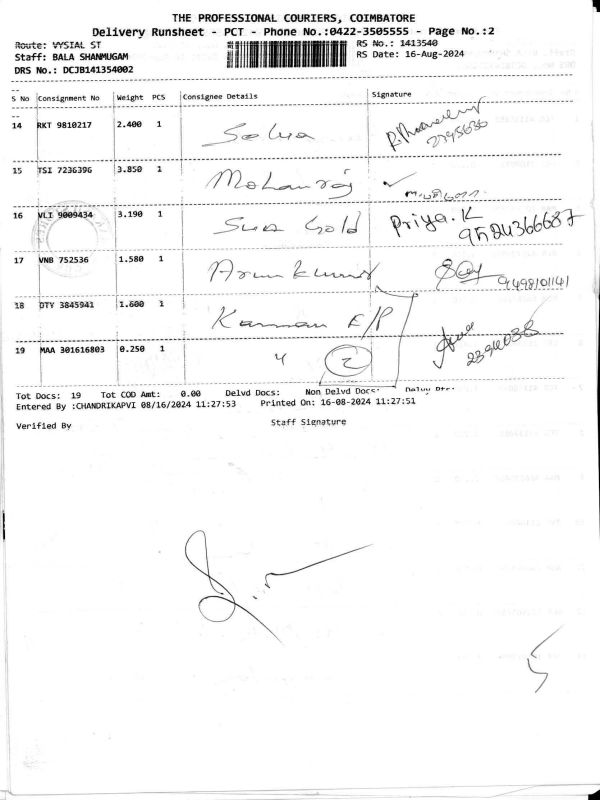 THE PROFESSIONAL COURIERS, COIMBATORE
Delivery Runsheet - PCT - Phone No.:0422-3505555 - Page No.:2
Route: VYSIAL ST RS No.: 1413540
Staff: BALA SHANMUGAM RS Date: 16-Aug-2024
DRS No.: DCJB141354002
S No Consignment No Weight PCS Consignee Details Signature
14 RKT 9810217 2.400 1
15 TSI 7236396 3.850 1 Mohanraj
16 VLI 9009434 3.190 1 Gold Priya.K
17 VNB 752536 1.580 1 Arun Kumar 9498101141
18 DTY 3845941 1.600 1 Kannan E/P
19 MAA 301616803 0.250 1 4 2
Tot Docs: 19 Tot COD Amt: 0.00 Delvd Docs: Non Delvd Docs:
Entered By :CHANDRIKAPVI 08/16/2024 11:27:53 Printed On: 16-08-2024 11:27:51
Verified By Staff Signature